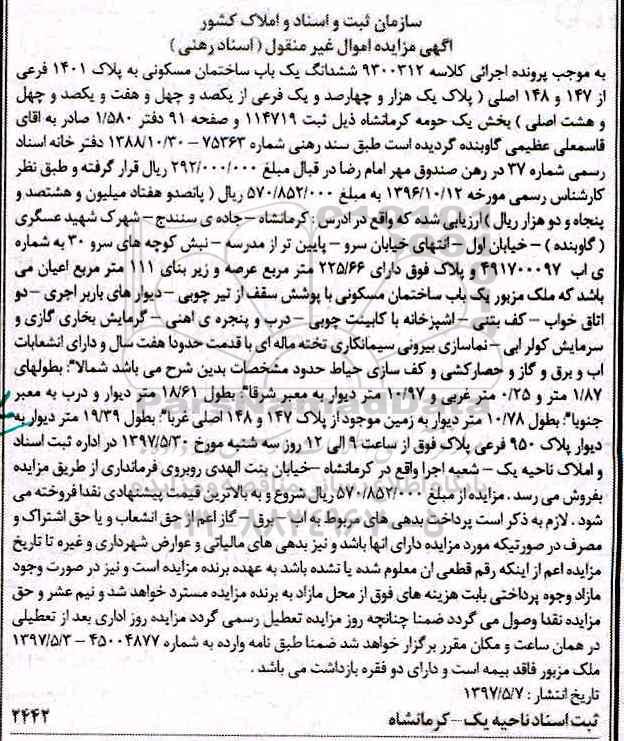 سازمان ثبت و اسناد و املاک کشور
آگهی مزایده اموال غیر منقول ( اسناد رهنی )
به موجب پرونده اجرائی کلاسه ۹۳۰۰۳۱۲ ششدانگ یک باب ساختمان مسکونی به پلاک ۱۴۰۱ فرعی
از ۱۴۷ و ۱۴۸ اصلی ( پلاک یک هزار و چهارصد و یک فرعی از یکصد و چهل و هفت و یکصد و چهل
و هشت اصلی ) بخش یک حومه کرمانشاه ذیل ثبت ۱۱۴۷۱۹ و صفحه ۹۱ دفتر ۱/۵۸۰ صادر به اقای
قاسمعلی عظیمی گاوبنده گردیده است طبق سند رهنی شماره ۷۵۳۶۳ – ۱۳۸۸/۱۰/۳۰ دفتر خانه اسناد
رسمی شماره ۳۷ در رهن صندوق مهر امام رضا در قبال مبلغ ۲۹۲/۰۰۰/۰۰۰ ریال قرار گرفته و طبق نظر
کارشناس رسمی مورخه ۱۳۹۶/۱۰/۱۲ به مبلغ ۵۷۰/۸۵۲/۰۰۰ ریال ( پانصدو هفتاد میلیون و هشتصد و
پنجاه و دو هزار ریال ) ارزیابی شده که واقع در ادرس : کرمانشاه – جاده ی سنندج – شهرک شهید عسگری
( گاوبنده ) – خیابان اول – انتهای خیابان سرو – پایین تر از مدرسه – نبش کوچه های سرو ۳۰ به شماره
ی اب ۴۹۱۷۰۰۰۹۷ و پلاک فوق دارای ۲۲۵/۶۶ متر مربع عرصه و زیر بنای ۱۱۱ متر مربع اعیان می
باشد که ملک مزبور یک باب ساختمان مسکونی با پوشش سقف از تیر چوبی – دیوار های باربر اجری – دو
اتاق خواب – کف بتنی – اشپزخانه با کابینت چوبی – درب و پنجره ی اهنی – گرمایش بخاری گازی و
سرمایش کولر ابی – نماسازی بیرونی سیمانکاری تخته ماله ای با قدمت حدودا هفت سال و دارای انشعابات
اب و برق و گاز و حصارکشی و کف سازی حیاط حدود مشخصات بدین شرح می باشد شمالا": بطولهای
۱/۸۷ متر و ۰/۲۵ متر غربی و ۱۰/۹۷ متر دیوار به معبر شرقا": بطول ۱۸/۶۱ متر دیوار و درب به معبر
جنوبا": بطول ۱۰/۷۸ متر دیوار به زمین موجود از پلاک ۱۴۷ و ۱۴۸ اصلی غربا": بطول ۱۹/۳۹ متر دیوار به
دیوار پلاک ۹۵۰ فرعی پلاک فوق از ساعت ۹ الی ۱۲ روز سه شنبه مورخ ۱۳۹۷/۵/۳۰ در اداره ثبت اسناد
و املاک ناحیه یک – شعبه اجرا واقع در کرمانشاه –خیابان بنت الهدی روبروی فرمانداری از طریق مزایده
بفروش می رسد . مزایده از مبلغ ۵۷۰/۸۵۲/۰۰۰ ریال شروع و به بالاترین قیمت پیشنهادی نقدا فروخته می
شود . لازم به ذکر است پرداخت بدهی های مربوط به اب – برق – گاز اعم از حق انشعاب و یا حق اشتراک و
مصرف در صورتیکه مورد مزایده دارای انها باشد و نیز بدهی های مالیاتی و عوارض شهرداری و غیره تا تاریخ
مزایده اعم از اینکه رقم قطعی ان معلوم شده یا نشده باشد به عهده برنده مزایده است و نیز در صورت وجود
مازاد وجوه پرداختی بابت هزینه های فوق از محل مازاد به برنده مزایده مسترد خواهد شد و نیم عشر و حق
مزایده نقدا وصول می گردد ضمنا چنانچه روز مزایده تعطیل رسمی گردد مزایده روز اداری بعد از تعطیلی
در همان ساعت و مکان مقرر برگزار خواهد شد ضمنا طبق نامه وارده به شماره ۴۵۰۰۴۸۷۷ – ۱۳۹۷/۵/۳
ملک مزبور فاقد بیمه است و دارای دو فقره بازداشت می باشد .
تاریخ انتشار : ۱۳۹۷/۵/۷
ثبت اسناد ناحیه یک – کرمانشاه
۲۴۴۲